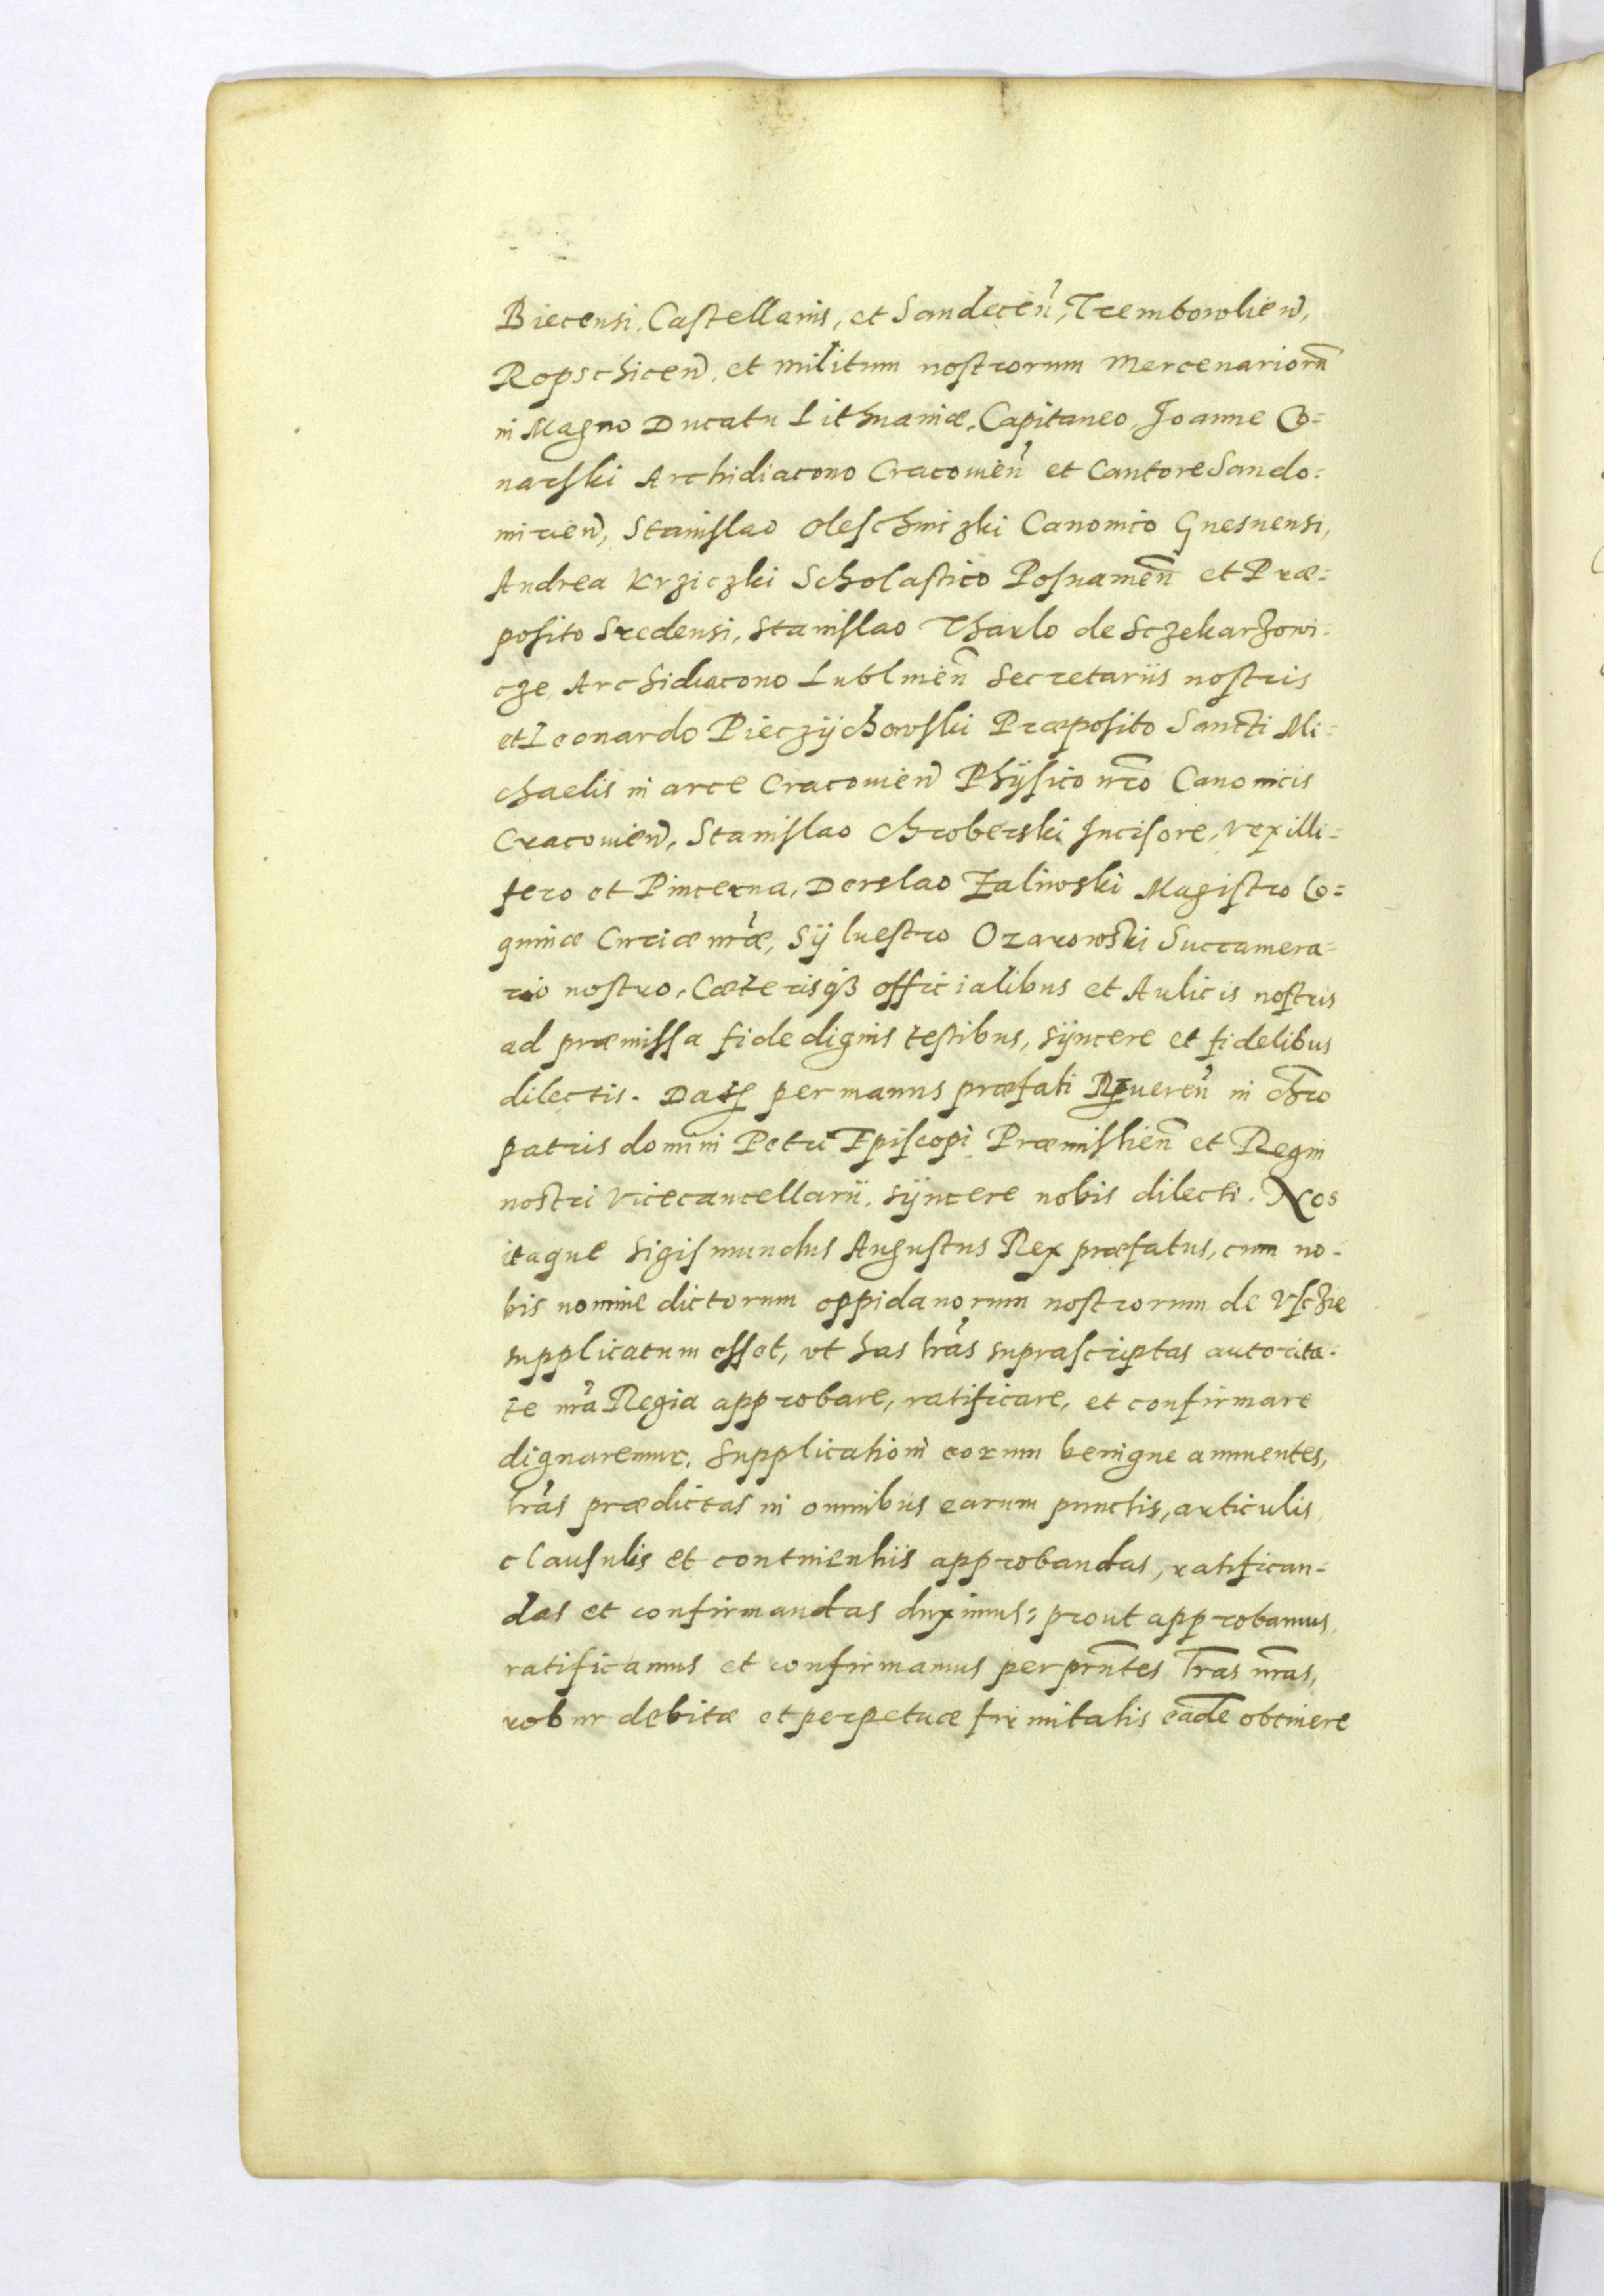 Biecensi, Castellanis, et Sandecen̄, Trembowlien̄,
Ropschicen̄, et militum nostrorum Mercenariorū
in Magno Ducatu Lithuaniæ, Capitaneo, Joanne Co=
narski Archidiacono Cracouien̄ et Cantore Sando=
mirien̄, Stanislao Oleschniczki Canonico Gnesnensi,
Andrea Krziczki Scholastico Posnamen̄ et Præ=
posito Sredensi, Stanislao Tharlo de Sczekarzowi=
cze, Archidiacono Lublinen̄ Secretariis nostris
et Leonardo Pieczÿchowski Præposito Sancti Mi=
chaelis in arce Cracouien̄ Phÿsico nr̄o Canonicis
Cracouien̄, Stanislao Chroberski Incisore, vexilli=
fero et Pincerna, Derslao Zaliwski Magistro Co=
quinæ Curiæ nr̄æ, Sÿluestro Ozarowski Succamera=
rio nostro, Cæterisq3 officialibus et Aulicis nostris
ad præmissa fide dignis testibus, sÿncere et fidelibus
dilectis. Dat̄ per manus præfati Reueren̄ in chr̄o
patris domini Petri Episcopi Præmislien̄ et Regni
nostri vicecancellarii, sÿncere nobis dilecti. Nos
itaque Sigismundus Augustus Rex præfatus, cum no=
bis nomine dictorum oppidanorum nostrorum de Vschie
supplicatum esset, vt has lr̄as suprascriptas autorita=
te nr̄a Regia approbare, ratificare, et confirmare
dignaremur. Supplicationi eorum benigne annuentes,
lr̄as prædictas in omnibus earum punctis, articulis,
clausulis et continentiis approbandas, ratifican=
das et confirmandas duximus; prout approbamus,
ratificamus et confirmamus per prn̄tes lr̄as nr̄as,
robur debitæ et perpetuæ firmitatis eādē obtinere